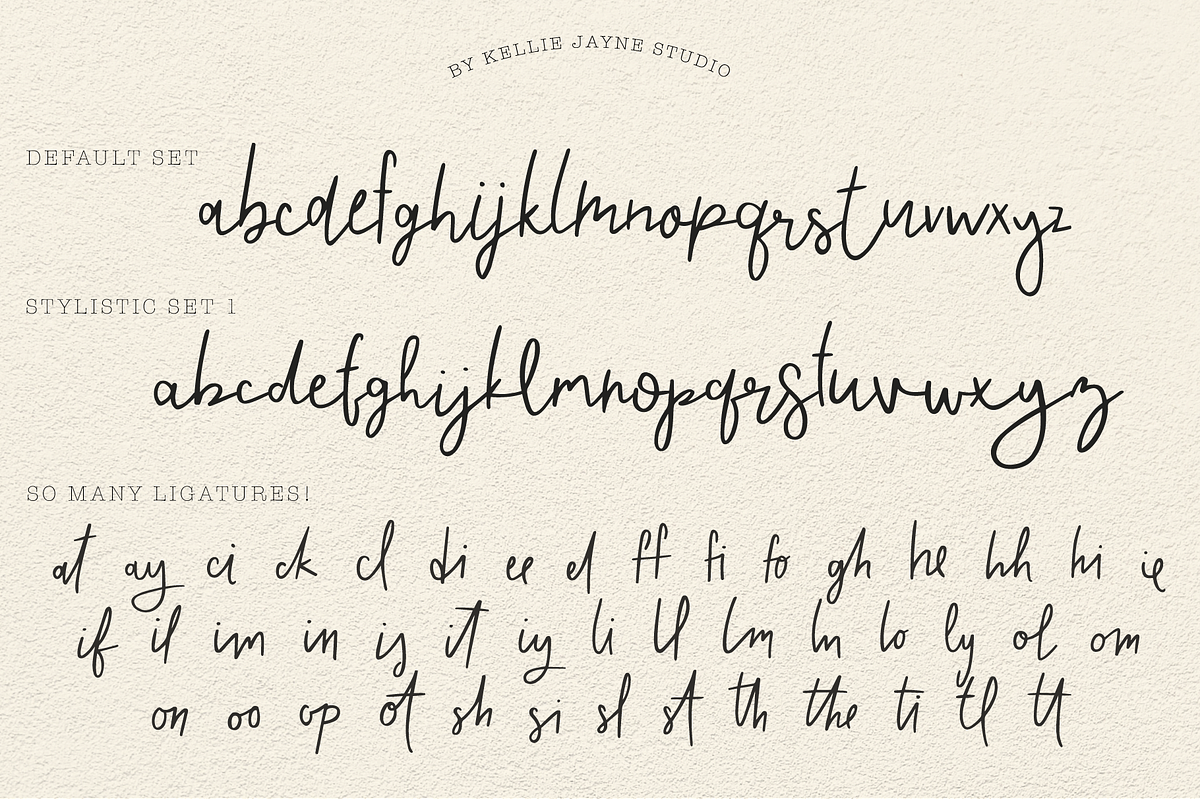 BY KELLIE JAYNE STUDIO
DEFAULT SET
abcdefghijklmnopqrstuvwxyz
STYLISTIC SET 1
abcdefghijklmnopqrstuvwxyz
SO MANY LIGATURES!
at ay ci ck cl di ee el ff fi fo gh he hh hi ie
if il im in is it iy li ll lm ln lo ly ol om
on oo op ot sh si sl st th the ti tl tt